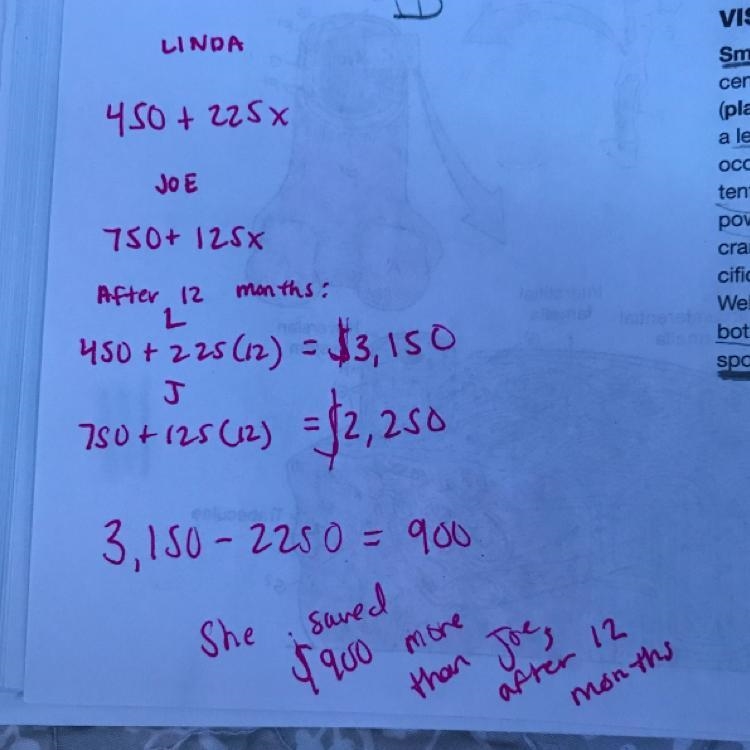 LINDA
450 + 225x
JOE
750 + 125x
After 12 months:
L
450 + 225(12) = $3,150
J
750 + 125(12) = $2,250
3,150 - 2250 = 900
She saved
$900 more
than Joe,
after 12
months
VIS
Sm
cen
(pla
a le
occ
ten
pow
cra
cific
Wel
bot
spo